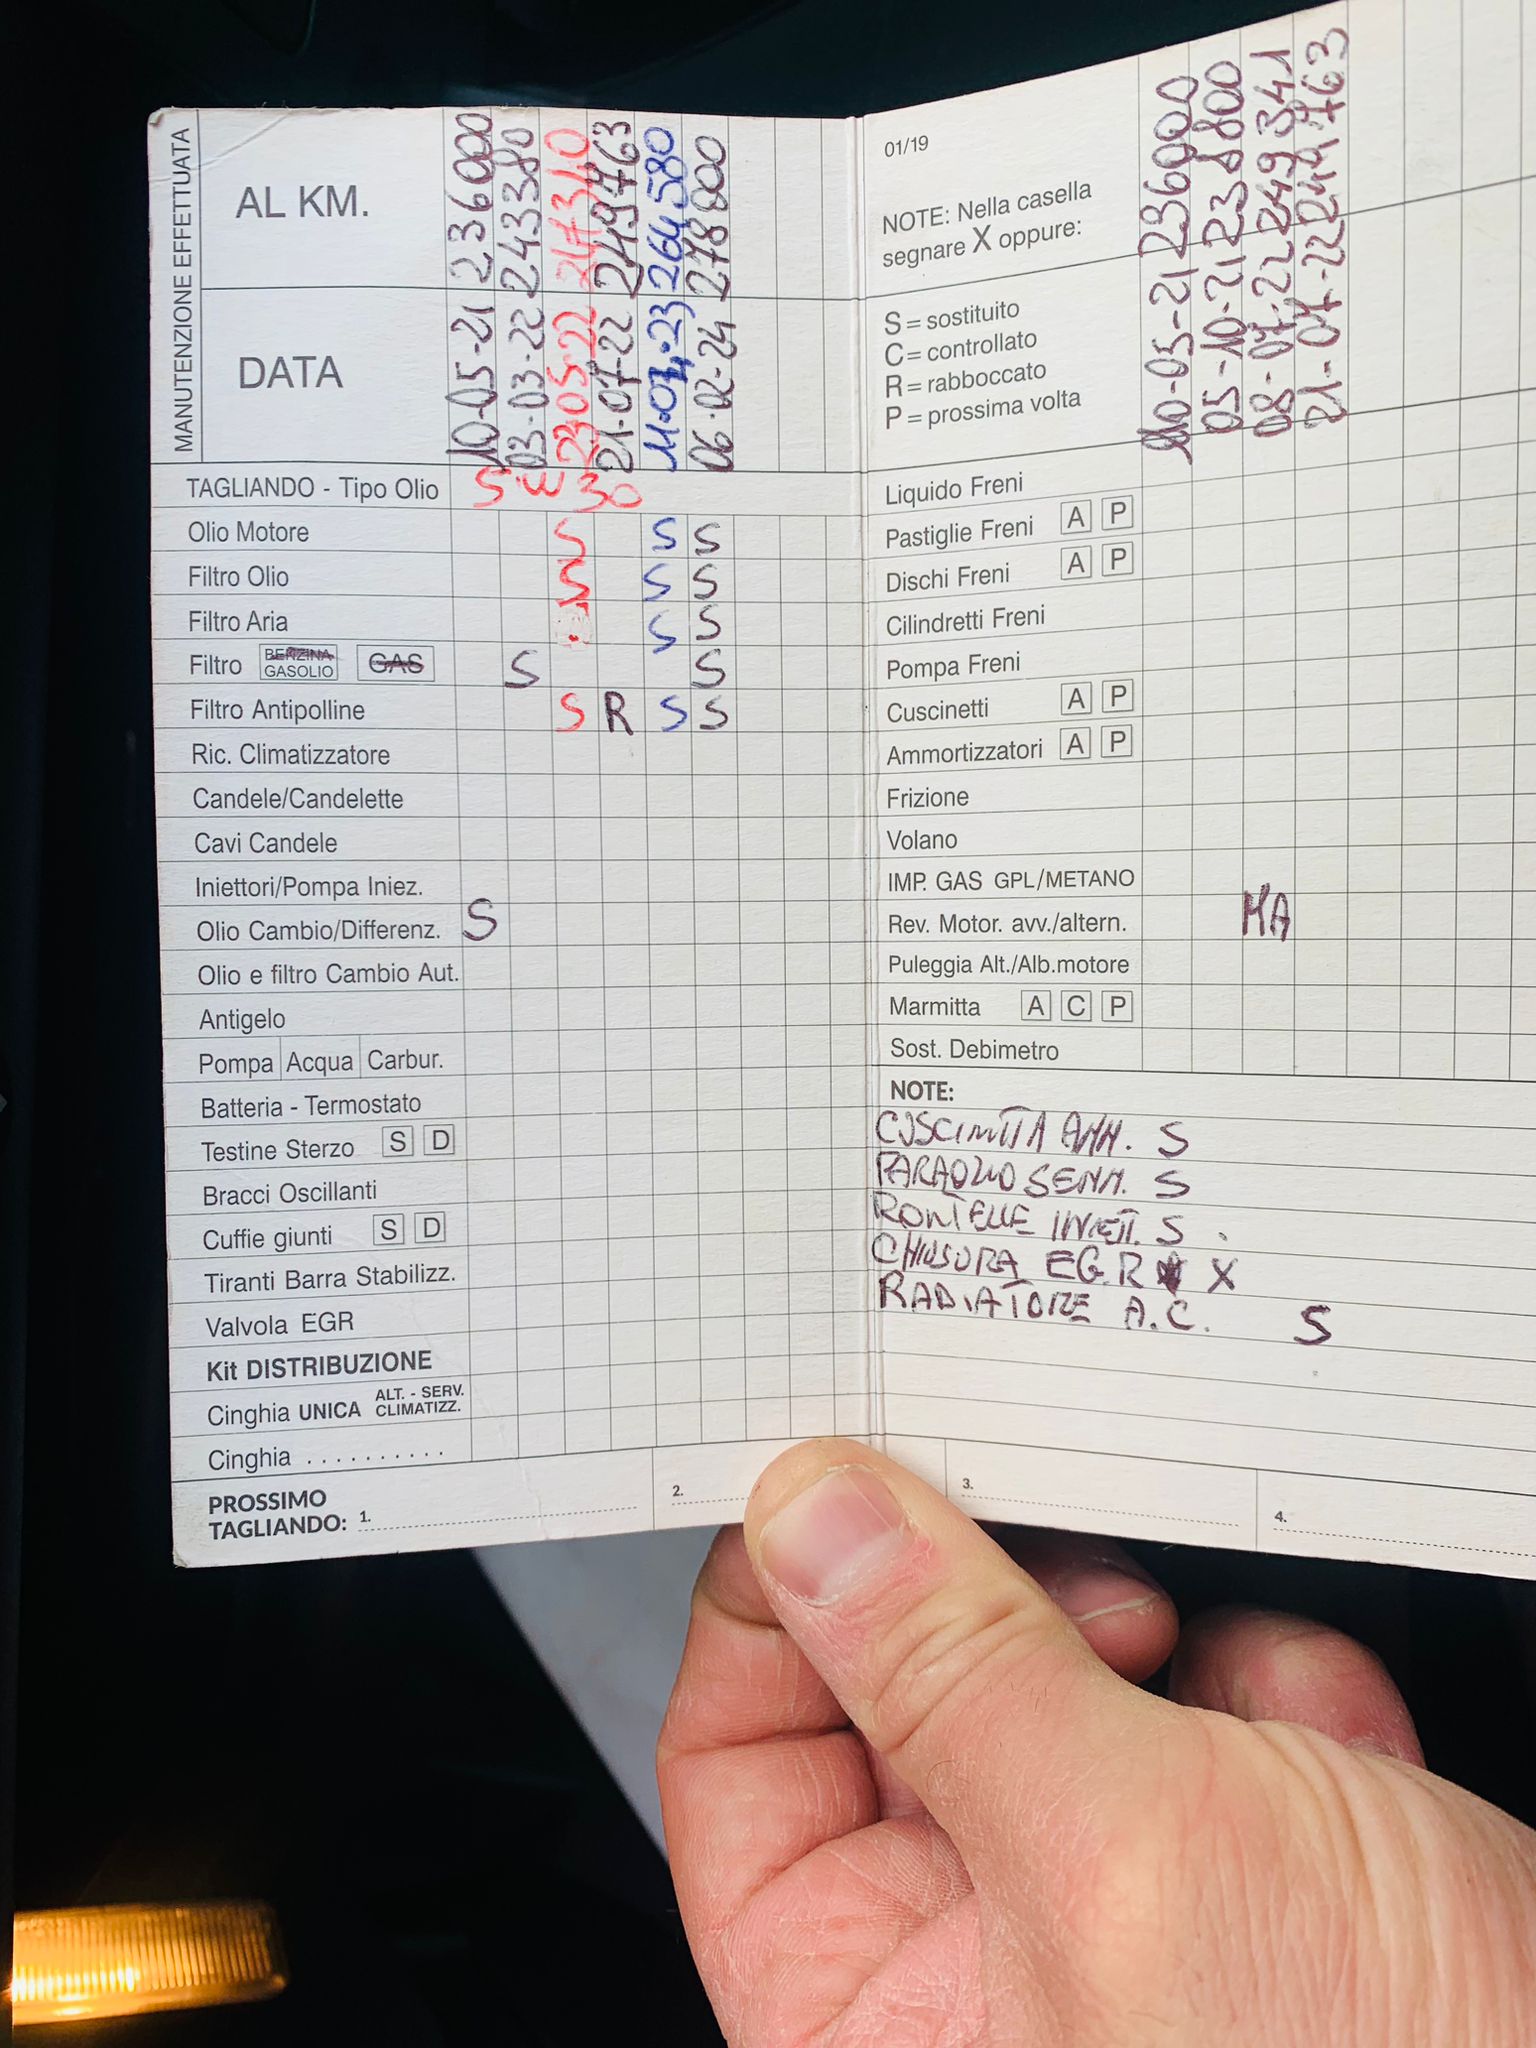 MANUTENZIONE EFFETTUATA
AL KM. 236000 243380 247310 249763 264580 278800
DATA 10-05-21 03-03-22 23-05-22 21-07-22 06-02-24
TAGLIANDO - Tipo Olio 5 W 30
Olio Motore S S S
Filtro Olio S S S
Filtro Aria S S
Filtro BENZINA GASOLIO GAS S S
Filtro Antipolline S R S S
Ric. Climatizzatore
Candele/Candelette
Cavi Candele
Iniettori/Pompa Iniez.
Olio Cambio/Differenz. S
Olio e filtro Cambio Aut.
Antigelo
Pompa Acqua Carbur.
Batteria - Termostato
Testine Sterzo S D
Bracci Oscillanti
Cuffie giunti S D
Tiranti Barra Stabilizz.
Valvola EGR
Kit DISTRIBUZIONE
Cinghia UNICA ALT. - SERV. CLIMATIZZ.
Cinghia . . . . . . . . . .
PROSSIMO TAGLIANDO: 1. 2. 3. 4.
01/19
NOTE: Nella casella
segnare X oppure:
S = sostituito
C = controllato
R = rabboccato
P = prossima volta
236000 238800 249341 249763
10-05-21 05-10-21 08-07-22 21-07-22
Liquido Freni
Pastiglie Freni A P
Dischi Freni A P
Cilindretti Freni
Pompa Freni
Cuscinetti A P
Ammortizzatori A P
Frizione
Volano
IMP. GAS GPL/METANO
Rev. Motor. avv./altern. MA
Puleggia Alt./Alb.motore
Marmitta A C P
Sost. Debimetro
NOTE:
S
S
RONTELLE INIETT. S
CHIUSURA EGR X
RADIATORE A.C. S